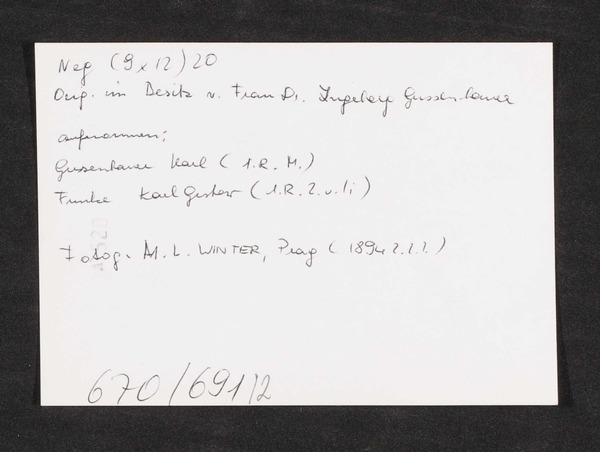 Neg (9 x 12) 20
Orig. im Besitz v. Frau Dr. Ingeborg Gussenbauer
aufnommen:
Gussenbauer Karl (1. R. M.)
Funke Karl Gustav (1. R. 2. v. li)
Fotog. M. L. WINTER, Prag (1894 ? ? ?)
670/691/2